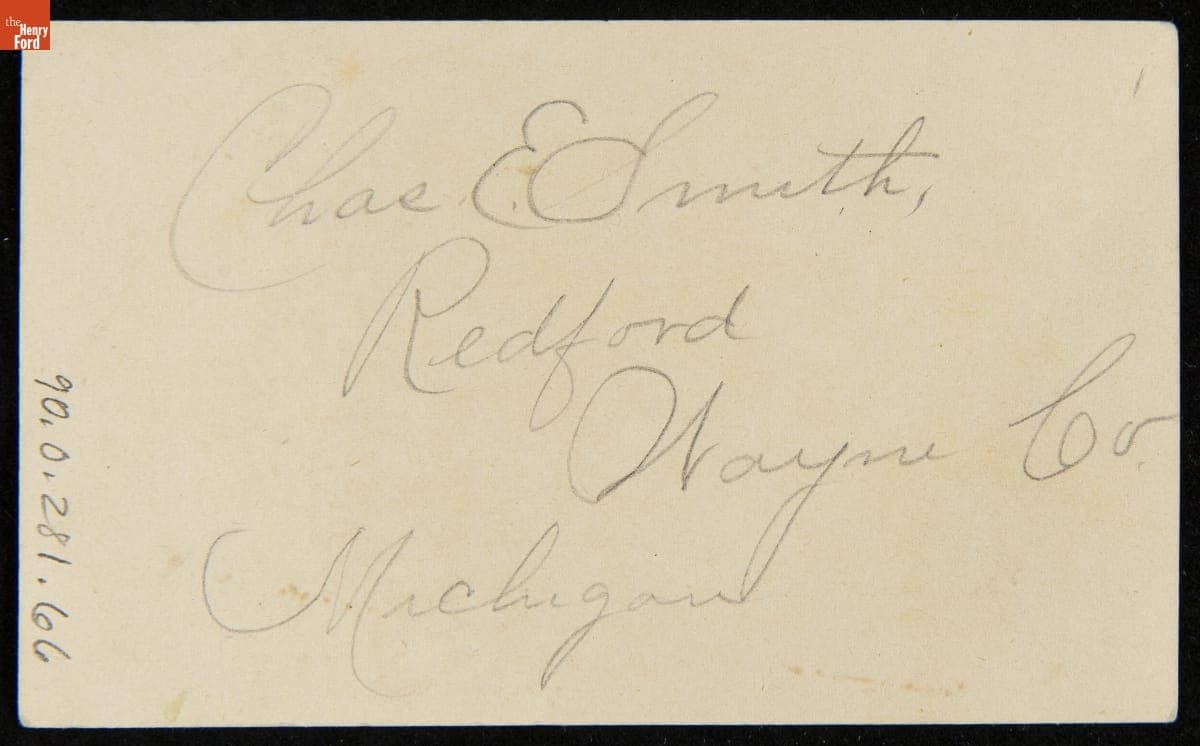 the Henry Ford
Chas. E. Smith,
Redford
Wayne Co.
Michigan
90.0.281.66